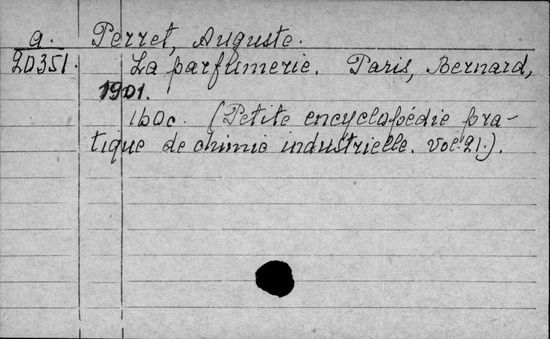 a. Perret, Auguste.
20351. La parfumerie. Paris, Bernard,
1901.
160c. (Petite encyclopédie pra-
tique de chimie industrielle. vol. 21.).